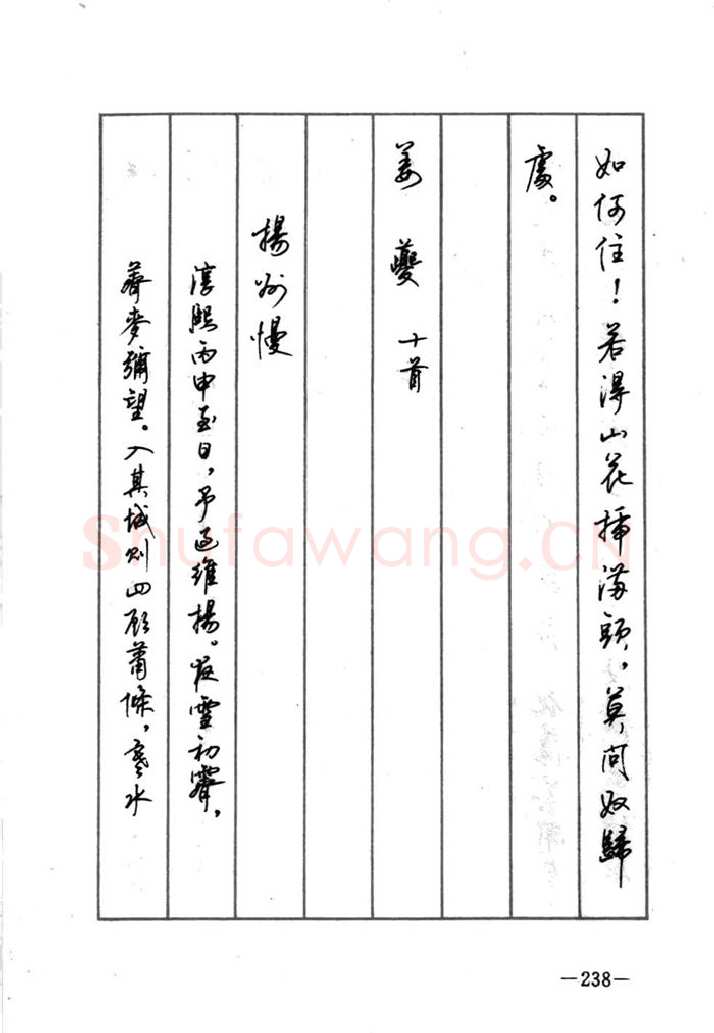 如何住！若得山花插满頭，莫问奴歸
處。
姜夔 十首
揚州慢
淳熙丙申至日，予过維揚。夜雪初霽，
薺麥彌望。入其城则四顾蕭條，寒水
Shufawang.CN
—238—